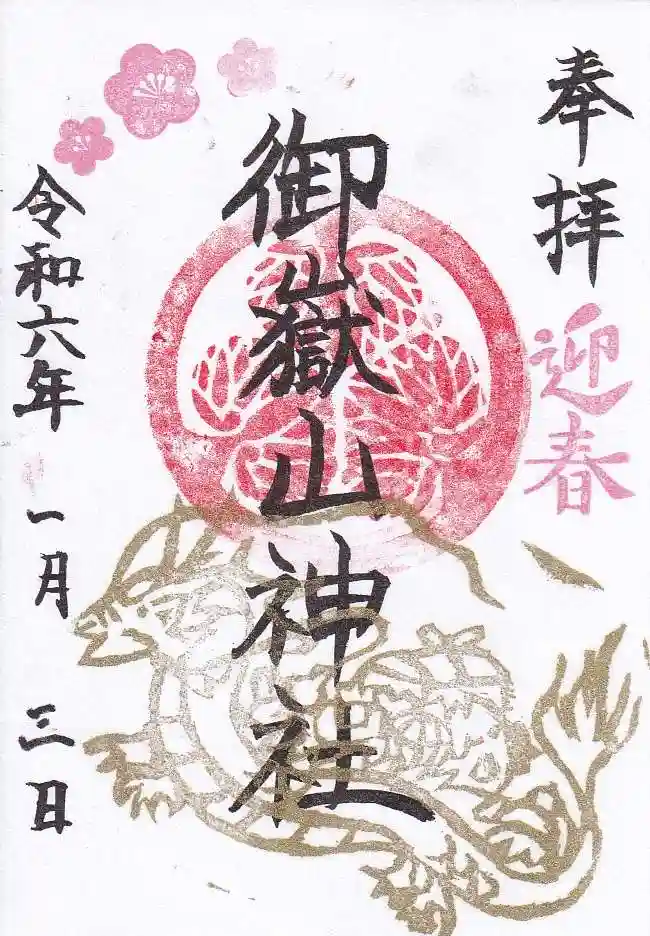 奉拝
迎春
御嶽山神社
令和六年一月三日